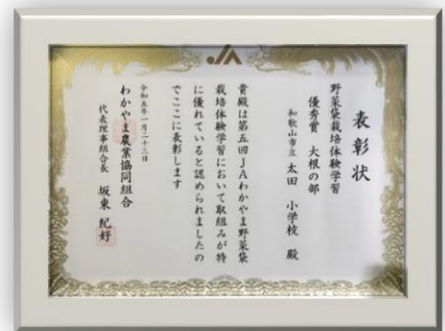 表彰状
野菜袋栽培体験学習
優秀賞 大根の部
和歌山市立 太田 小学校 殿
貴殿は第五回JAわかやま野菜袋
栽培体験学習において取組みが特
に優れていると認められましたの
でここに表彰します
令和五年一月二十三日
わかやま農業協同組合
代表理事組合長 坂東 紀好